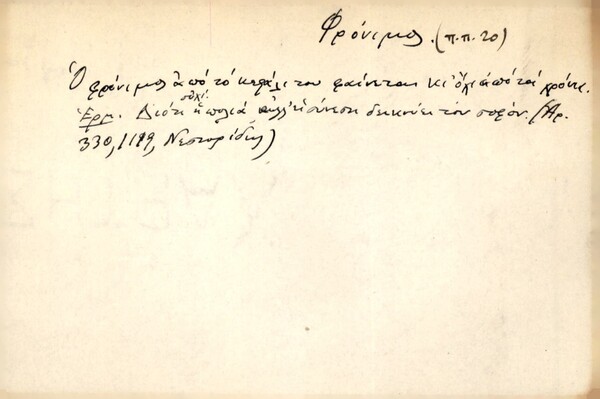 Φρόνιμος. (π.π. 20)
Ὁ φρόνιμος ἀπό τό κεφάλι του φαίνεται κι ὄχι ἀπό τά χρόνια.
Ἑρμ. Διότι οὐχί ἡ πολιά, ἀλλ' ἡ σύνεση δεικνύει τόν σοφόν. (Ἀρ.
330, 1189, Νεστορίδης)